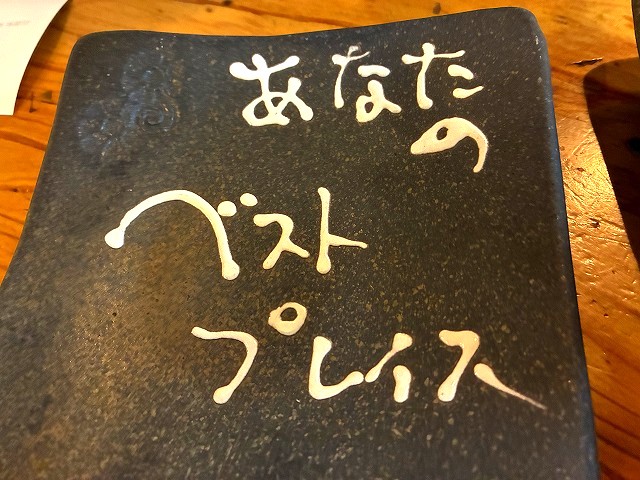 あなた
の
ベスト
プレイス